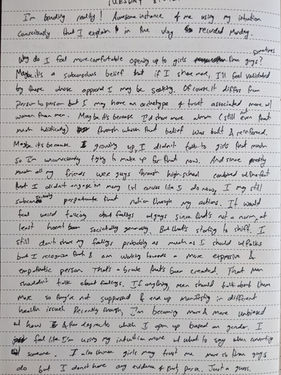 TUESDAY
I'm bending reality! Awesome instance of me using my intuition
consciously that I explain in the vlog recorded Monday.
sometimes
Why do I feel more comfortable opening up to girls than guys?
Maybe it's a subconscious belief that if I share more, I'll feel validated
by those whose approval I may be seeking. Of course it differs from
person to person but I may have an archetype of trust associated more w/
women than men. Maybe it's because I'd draw more
through which that belief was built & reinforced.
Maybe it's because growing up, I didn't talk to girls that much
so I'm unconsciously trying to make up for that now. And since pretty
much all my friends were guys through high school combined w/ the fact
that I didn't engage in many convos like I do now, I may still
subconsciously perpetuate that notion through my actions. It would
feel weird talking about feelings w/ guys since that's not a norm, at
least hasn't been societally generally. But that's starting to shift. I
still don't share my feelings probably as much as I should w/ folks
but I recognize that & am working towards a more expressive &
empathetic person. That's a broke that's been created. That men
shouldn't talk about feelings. If anything, men should talk about them
more so they're not suppressed & end up manifesting in different
health issues. Recently though, I'm becoming more & more unbiased
w/ how & the degree to which I open up based on gender. I
feel like I'm using my intuition more w/ what to say when conversing
w/ someone. I also think girls may trust me more than guys
do but I don't have any evidence of that. Just a guess.